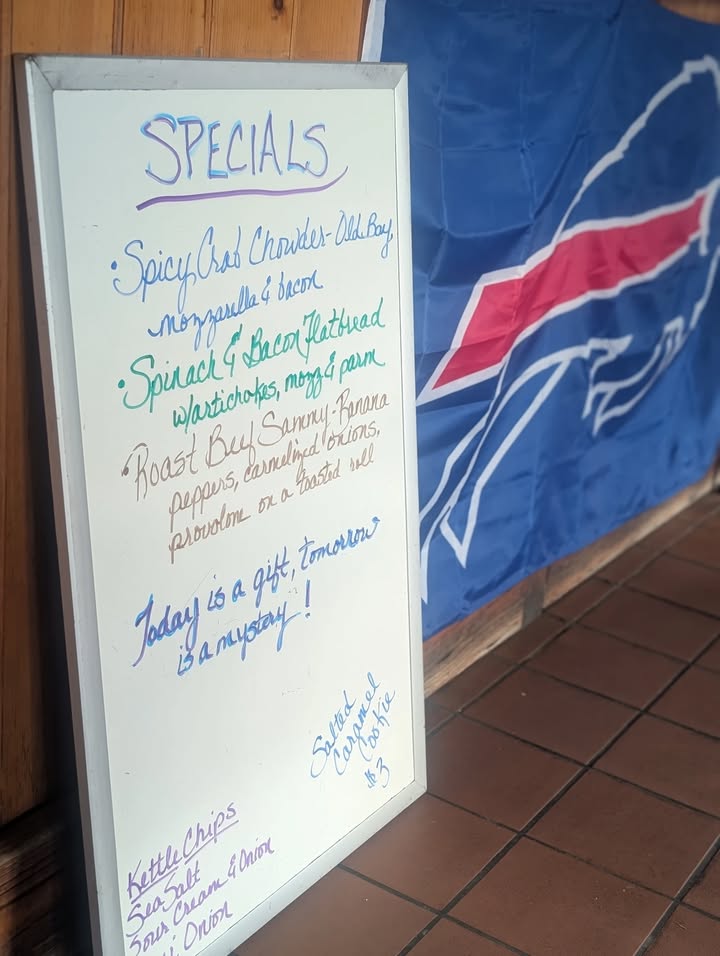 SPECIALS
• Spicy Crab Chowder - Old Bay,
mozzarella & bacon
• Spinach & Bacon Flatbread
w/artichokes, mozz & parm
• Roast Beef Sammy - Banana
peppers, carmelized onions,
provolone on a toasted roll
Today is a gift, tomorrow
is a mystery!
Salted
Caramel
Cookie
$3
Kettle Chips
Sea Salt
Sour Cream & Onion
Onion